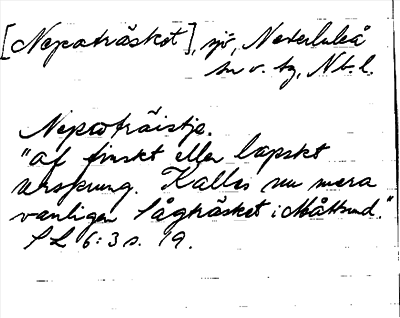 [Nepaträsket], sjö, Nederluleå
sn v. sg, Nb. l.
Nepatväistje.
"af finskt eller lapskt
ursprung. Kallas nu mera
vanligen Sågträsket i Måttsund."
SL 6:3 s. 19.